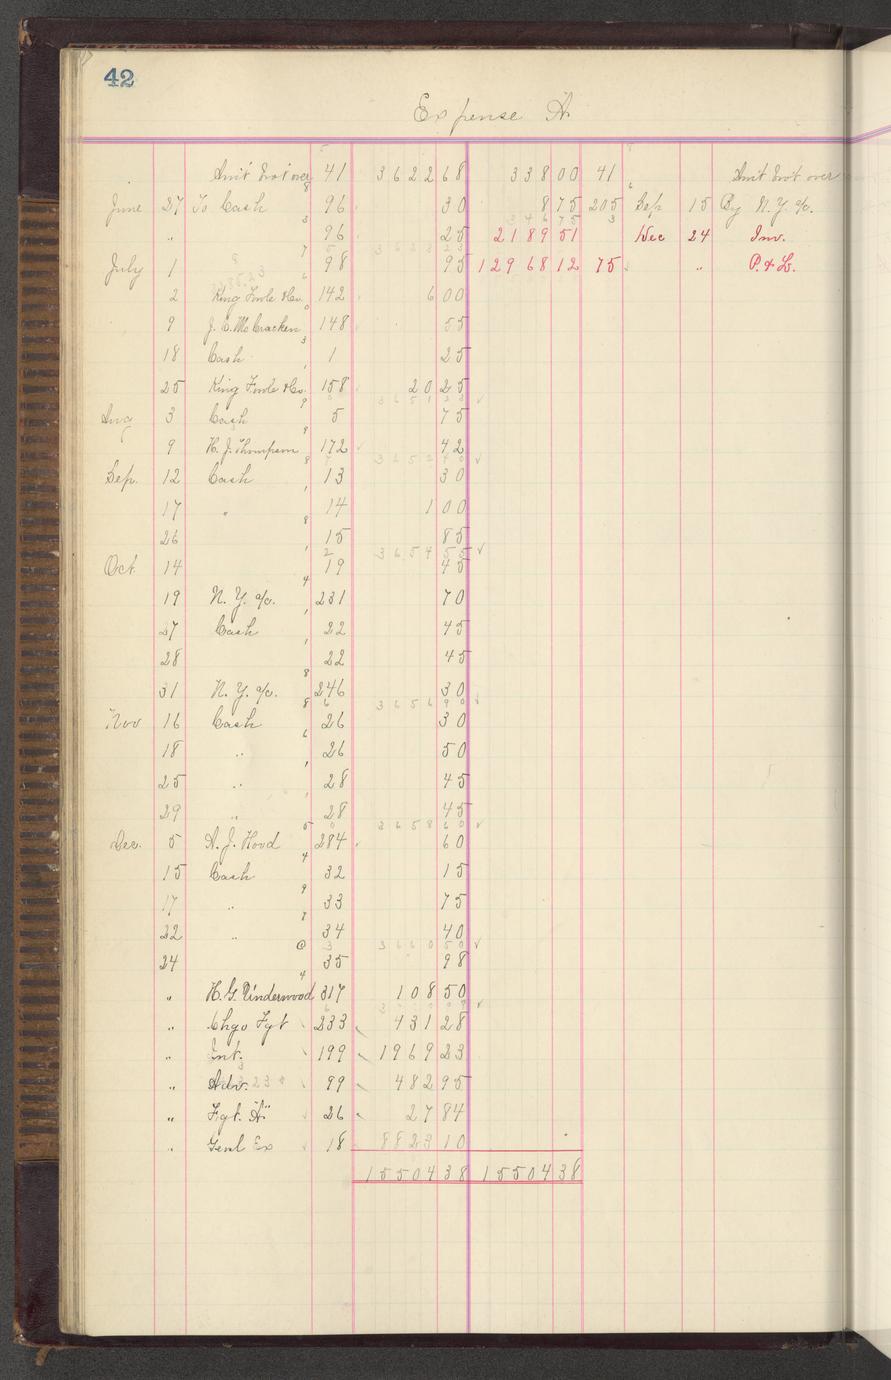 42
Expense A
Am't bro't over 41 3622 68 338 00 41 Am't bro't over
June 27 To Cash 96 30 8 75 205 Sep 15 By N.Y. a/c.
" 96 25 2189 51 Dec 24 Inv.
July 1 98 95 12968 12 75 " P. & L.
2 King Fowle & Co. 142 6 00
9 J. C. McCracken 148 55
18 Cash 1 25
25 King Fowle & Co. 158 20 25
Aug 3 Cash 5 75
9 H. J. Thompson 172 42
Sep. 12 Cash 13 30
17 " 14 1 00
26 15 85
Oct 14 19 45
19 N.Y. a/c. 231 70
27 Cash 22 45
28 22 45
31 N.Y. a/c. 246 30
Nov 16 Cash 26 30
18 " 26 50
25 " 28 45
29 " 28 45
Dec. 5 A. J. Hood 284 60
15 Cash 32 15
17 " 33 75
22 " 34 40
24 35 98
" H. G. Underwood 317 108 50
" Chgo Fgt 233 431 28
" Int. 199 1969 23
" Adv. 99 482 95
" Fgt. "A" 26 27 84
" Genl Ex 18 8823 10
15504 38 15504 38